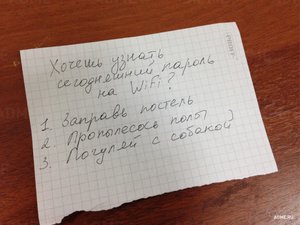 Хочешь узнать
сегодняшний пароль
на WiFi?
1. Заправь постель
2. Пропылесось полы
3. Погуляй с собакой
ADME.RU